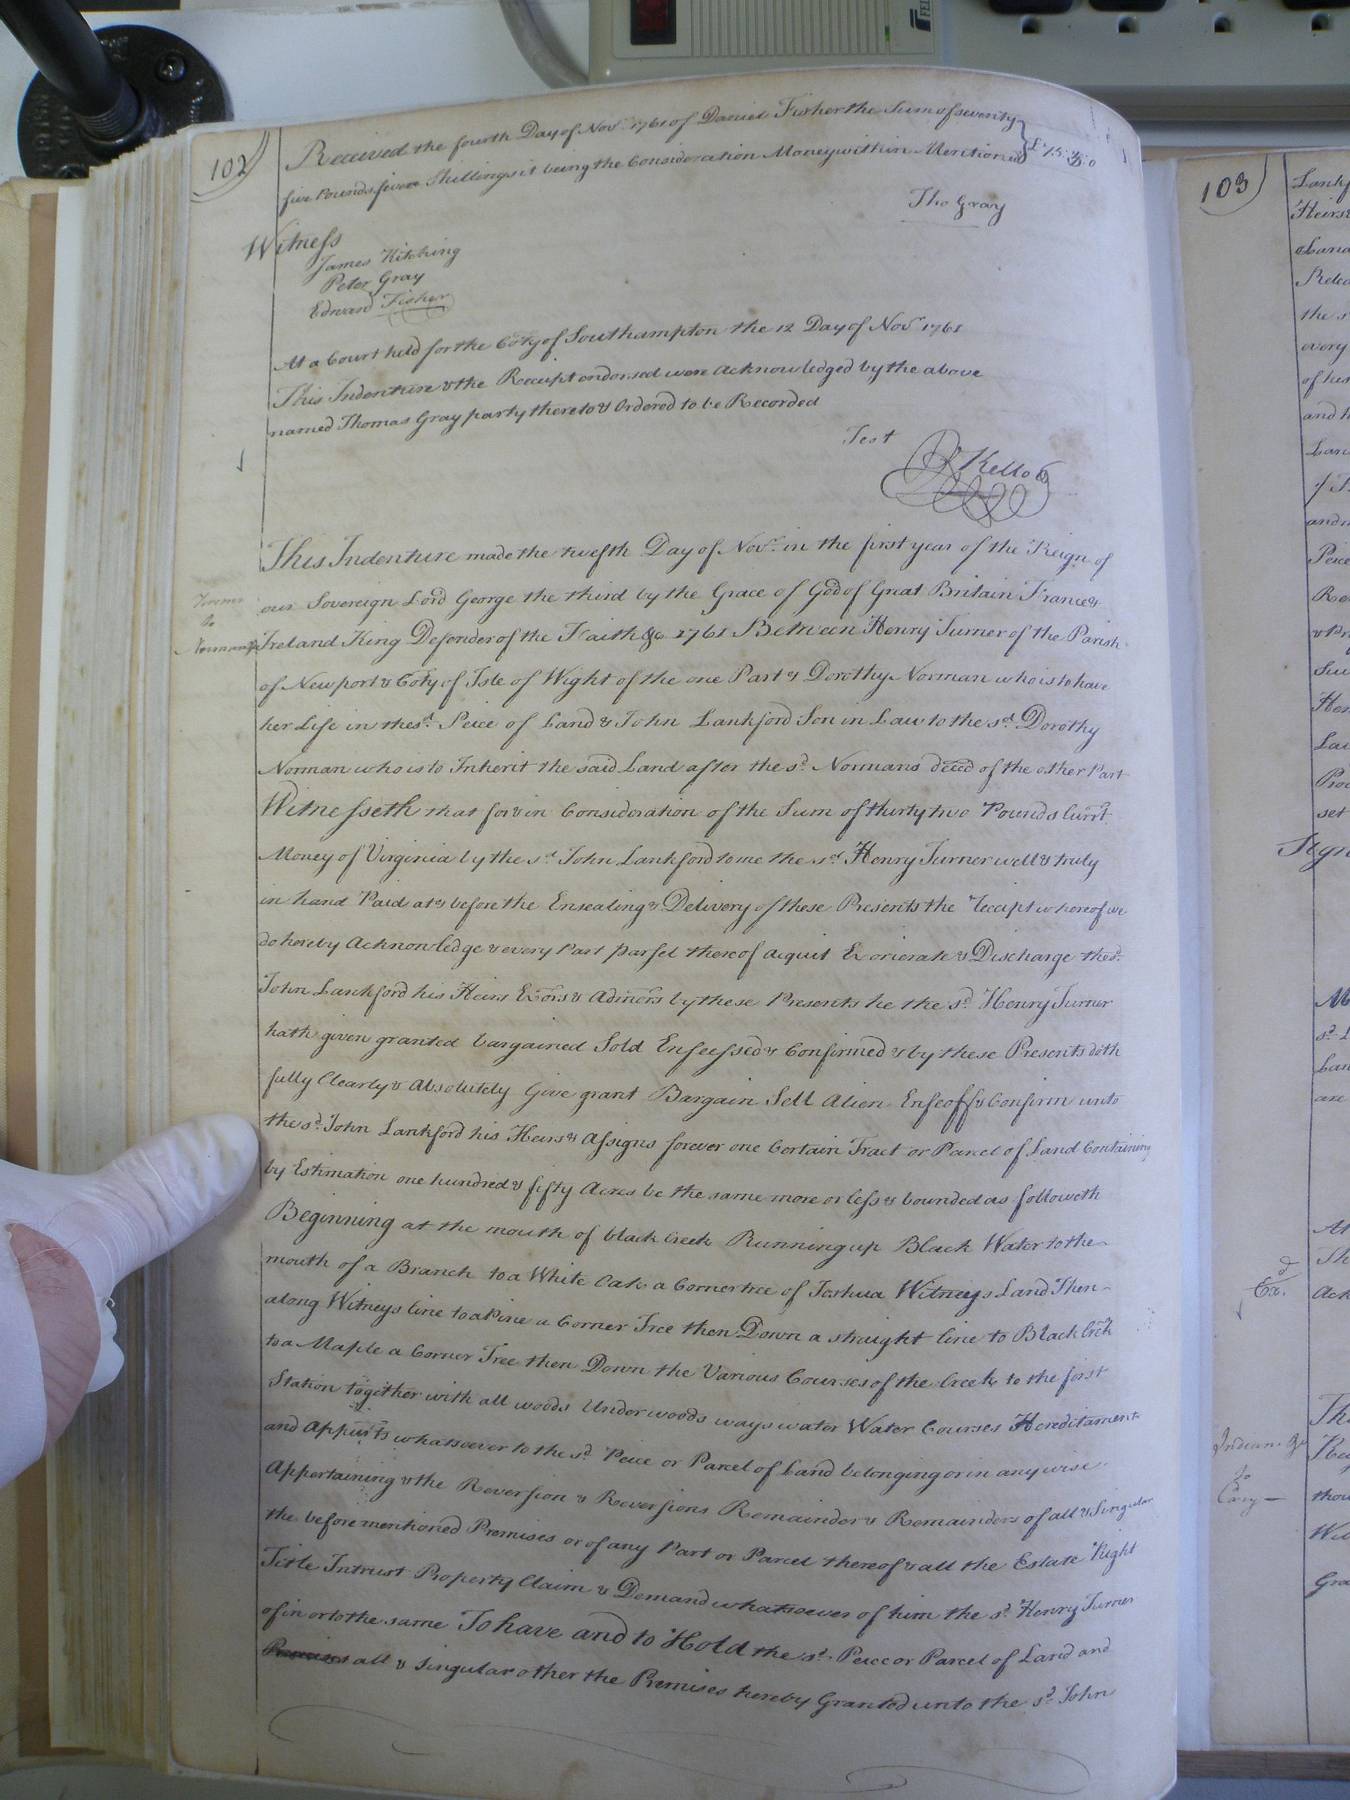 102
Received the fourth Day of Novr. 1761 of Daniel Fisher the Sum of seventy
five Pounds seven Shillings it being the Consideration Money within Mention'd
Tho Gray
Witness
James Kitching
Peter Gray
Edward Fisher
At a Court held for the Coty of Southampton the 12 Day of Novr. 1761
This Indenture & the Receipt endorsed were Acknowledged by the above
named Thomas Gray party thereto & Ordered to be Recorded
Test
R Kello C
This Indenture made the twefth Day of Novr. in the first year of the Reign of
our Sovereign Lord George the third by the Grace of God of Great Britain France &
Ireland King Defender of the Faith &c 1761 Between Henry Turner of the Parish
of Newport & Coty of Isle of Wight of the one Part & Dorothy Norman who is to have
her Life in the sd. Peice of Land & John Lankford Son in Law to the sd. Dorothy
Norman who is to Inherit the said Land after the sd. Normans deced of the other Part
Witnesseth that for & in Consideration of the Sum of thirty two Pounds Currt.
Money of Virginia by the sd. John Lankford to me the sd. Henry Turner well & truly
in hand Paid at & before the Ensealing & Delivery of these Presents the Receipt whereof we
do hereby Acknowledge & every Part parsel thereof acquit Exonerate & Discharge the sd.
John Lankford his Heirs Exors & Admors by these Presents he the sd. Henry Turner
hath given granted bargained Sold Enfeeffed & Confirmed & by these Presents doth
fully Clearly & Absolutely Give grant Bargain Sell Alien Enfeoff & Confirm unto
the sd. John Lankford his Heirs & Assigns forever one Certain Tract or Parcel of Land Containing
by Estimation one hundred & fifty Acres be the same more or less & bounded as followeth
Beginning at the mouth of black Creek Running up Black Water to the
mouth of a Branch to a White Oak a Corner tree of Joshua Witneys Land Then
along Witneys line to a Pine a Corner Tree then Down a straight line to Black Creek
to a Maple a Corner Tree then Down the Various Courses of the Creek to the first
Station together with all woods Underwoods ways water Water Courses Hereditaments
and Appurts whatsoever to the sd. Peice or Parcel of Land belonging or in any wise
Appertaining & the Reversion & Reversions Remainder & Remainders of all & Singular
the before mentioned Premises or of any Part or Parcel thereof & all the Estate Right
Title Intrust Property Claim & Demand whatsoever of him the sd. Henry Turner
of in or to the same To have and to Hold the sd. Peice or Parcel of Land and
all & Singular other the Premises hereby Granted unto the sd. John
Turner
to
Norman
103
Indians &c
to
Cary